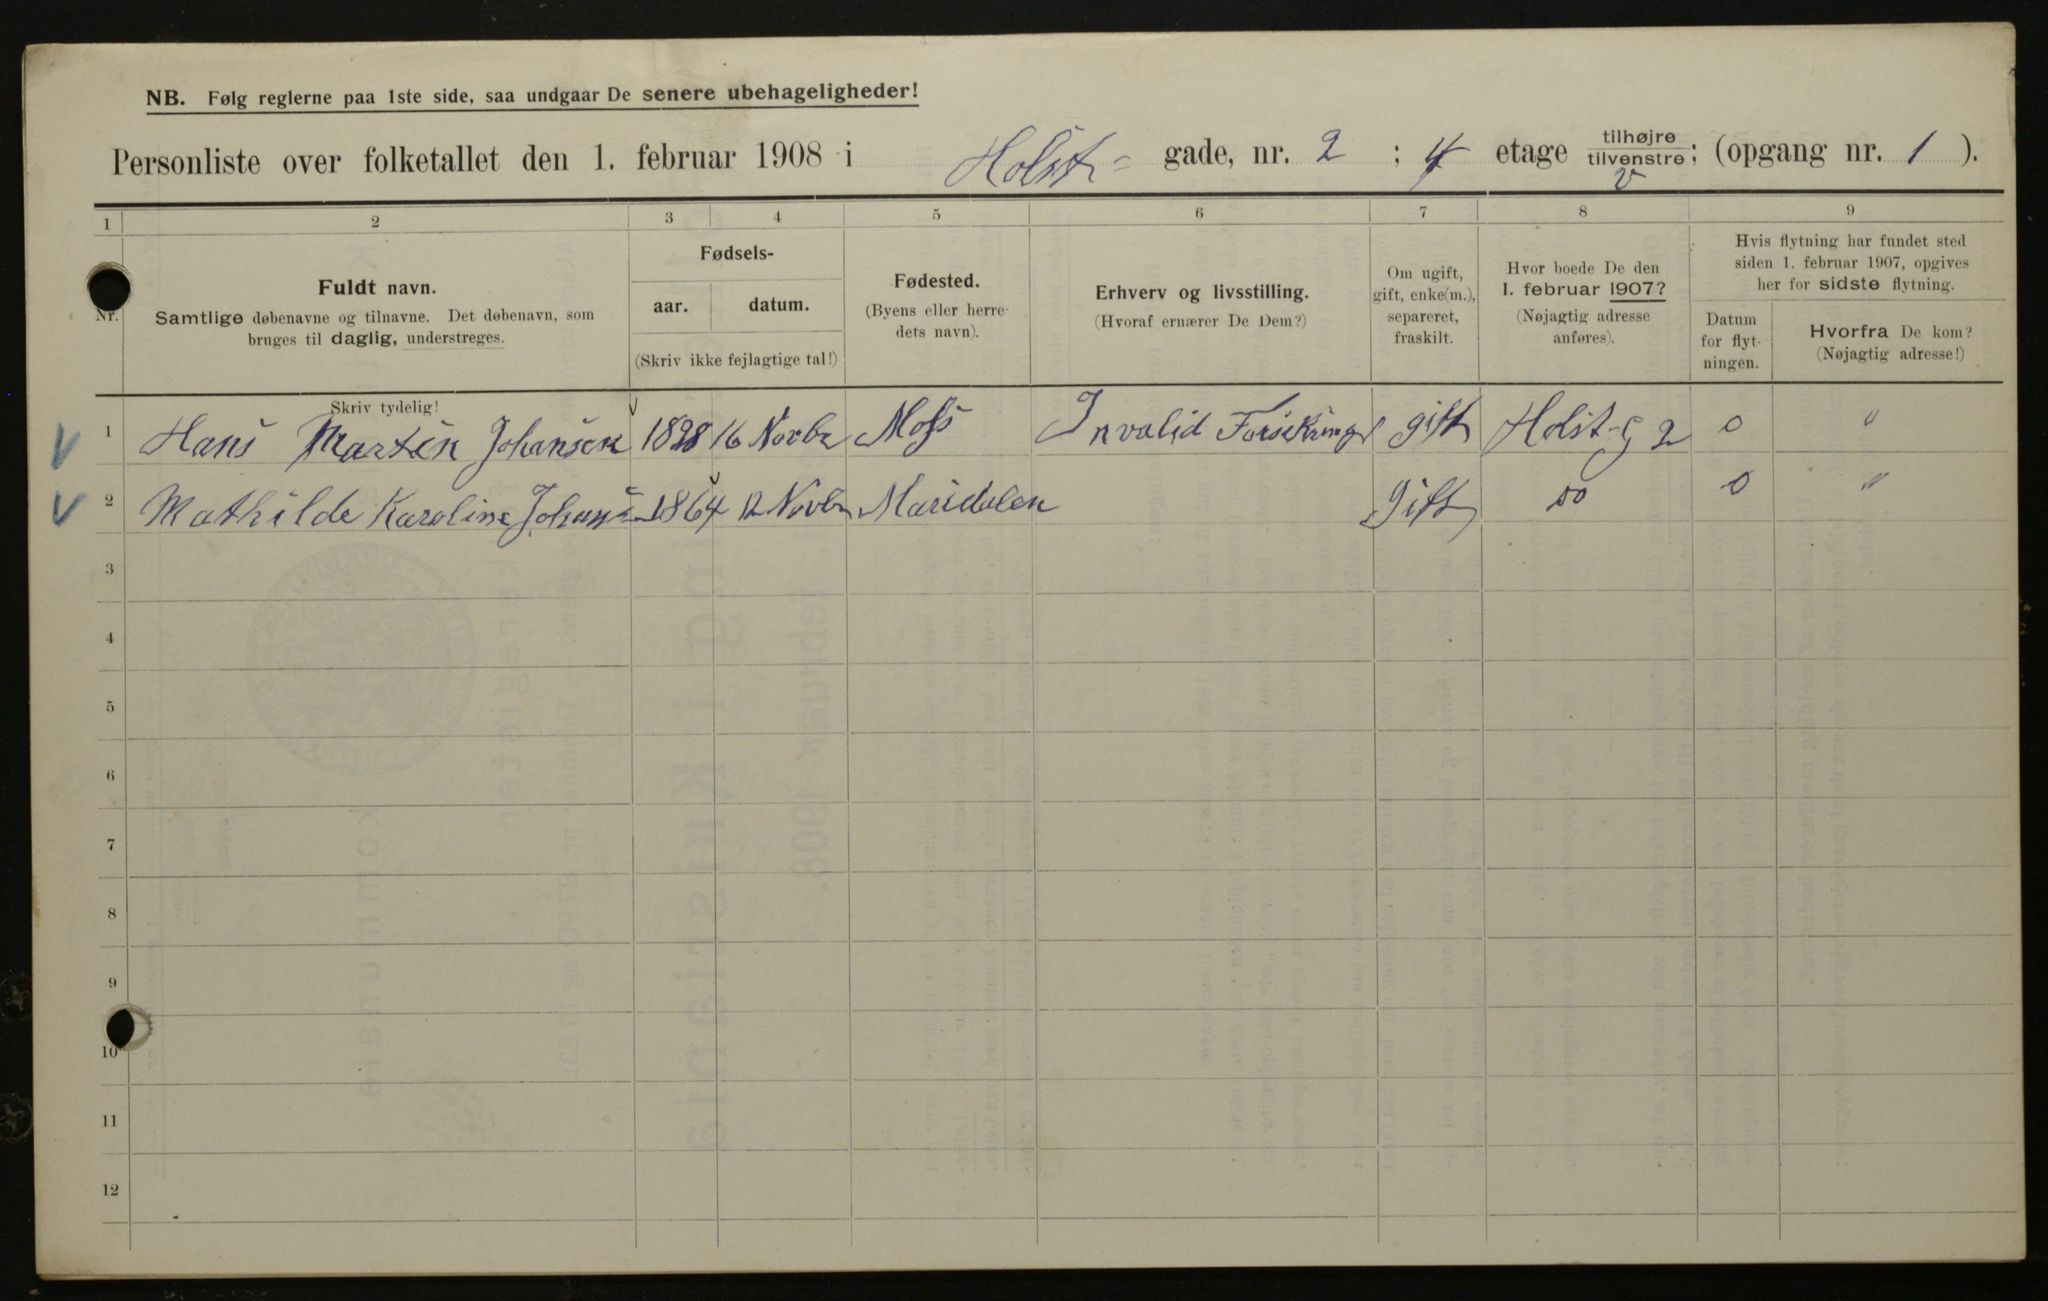 NB. Følg reglerne paa 1ste side, saa undgaar De senere ubehageligheder!
Personliste over folketallet den 1. februar 1908 i Holst- gade, nr. 2 ; 4 etage tilhøjre/tilvenstre; (opgang nr. 1 ).
v
1 2 3 4 5 6 7 8 9
Nr.
Fuldt navn.
Samtlige døbenavne og tilnavne. Det døbenavn, som
bruges til daglig, understreges.
Skriv tydelig!
Fødsels-
aar. datum.
(Skriv ikke fejlagtige tal!)
Fødested.
(Byens eller herre-
dets navn).
Erhverv og livsstilling.
(Hvoraf ernærer De Dem?)
Om ugift,
gift, enke(m.),
separeret,
fraskilt.
Hvor boede De den
1. februar 1907?
(Nøjagtig adresse
anføres).
Hvis flytning har fundet sted
siden 1. februar 1907, opgives
her for sidste flytning.
Datum
for flyt-
ningen.
Hvorfra De kom?
(Nøjagtig adresse!)
1 Hans Martin Johansen 1828 16 Novbr Moss Invalid Forsikring gift Holst-g 2 0 "
2 Mathilde Karoline Johans 1864 12 Novbr Maridalen Gift do 0 "
3
4
5
6
7
8
9
10
11
12